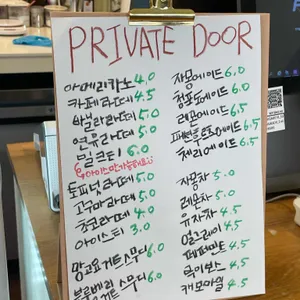 PRIVATE DOOR
아메리카노 4.0
카페라떼 4.5
바닐라라떼 5.0
연유라떼 5.0
밀크티 6.0
아이스만가능해요
토피넛라떼 5.0
고구마라떼 5.0
초코라떼 4.0
아이스티 3.0
망고요거트스무디 6.0
블루베리요거트스무디 6.0
자몽에이드 6.0
청포도에이드 6.0
레몬에이드 6.5
패션후르츠에이드 6.5
체리에이드 6.5
자몽차 5.0
레몬차 5.0
유자차 4.5
얼그레이 4.5
페퍼민트 4.5
루이보스 4.5
캐모마일 4.5